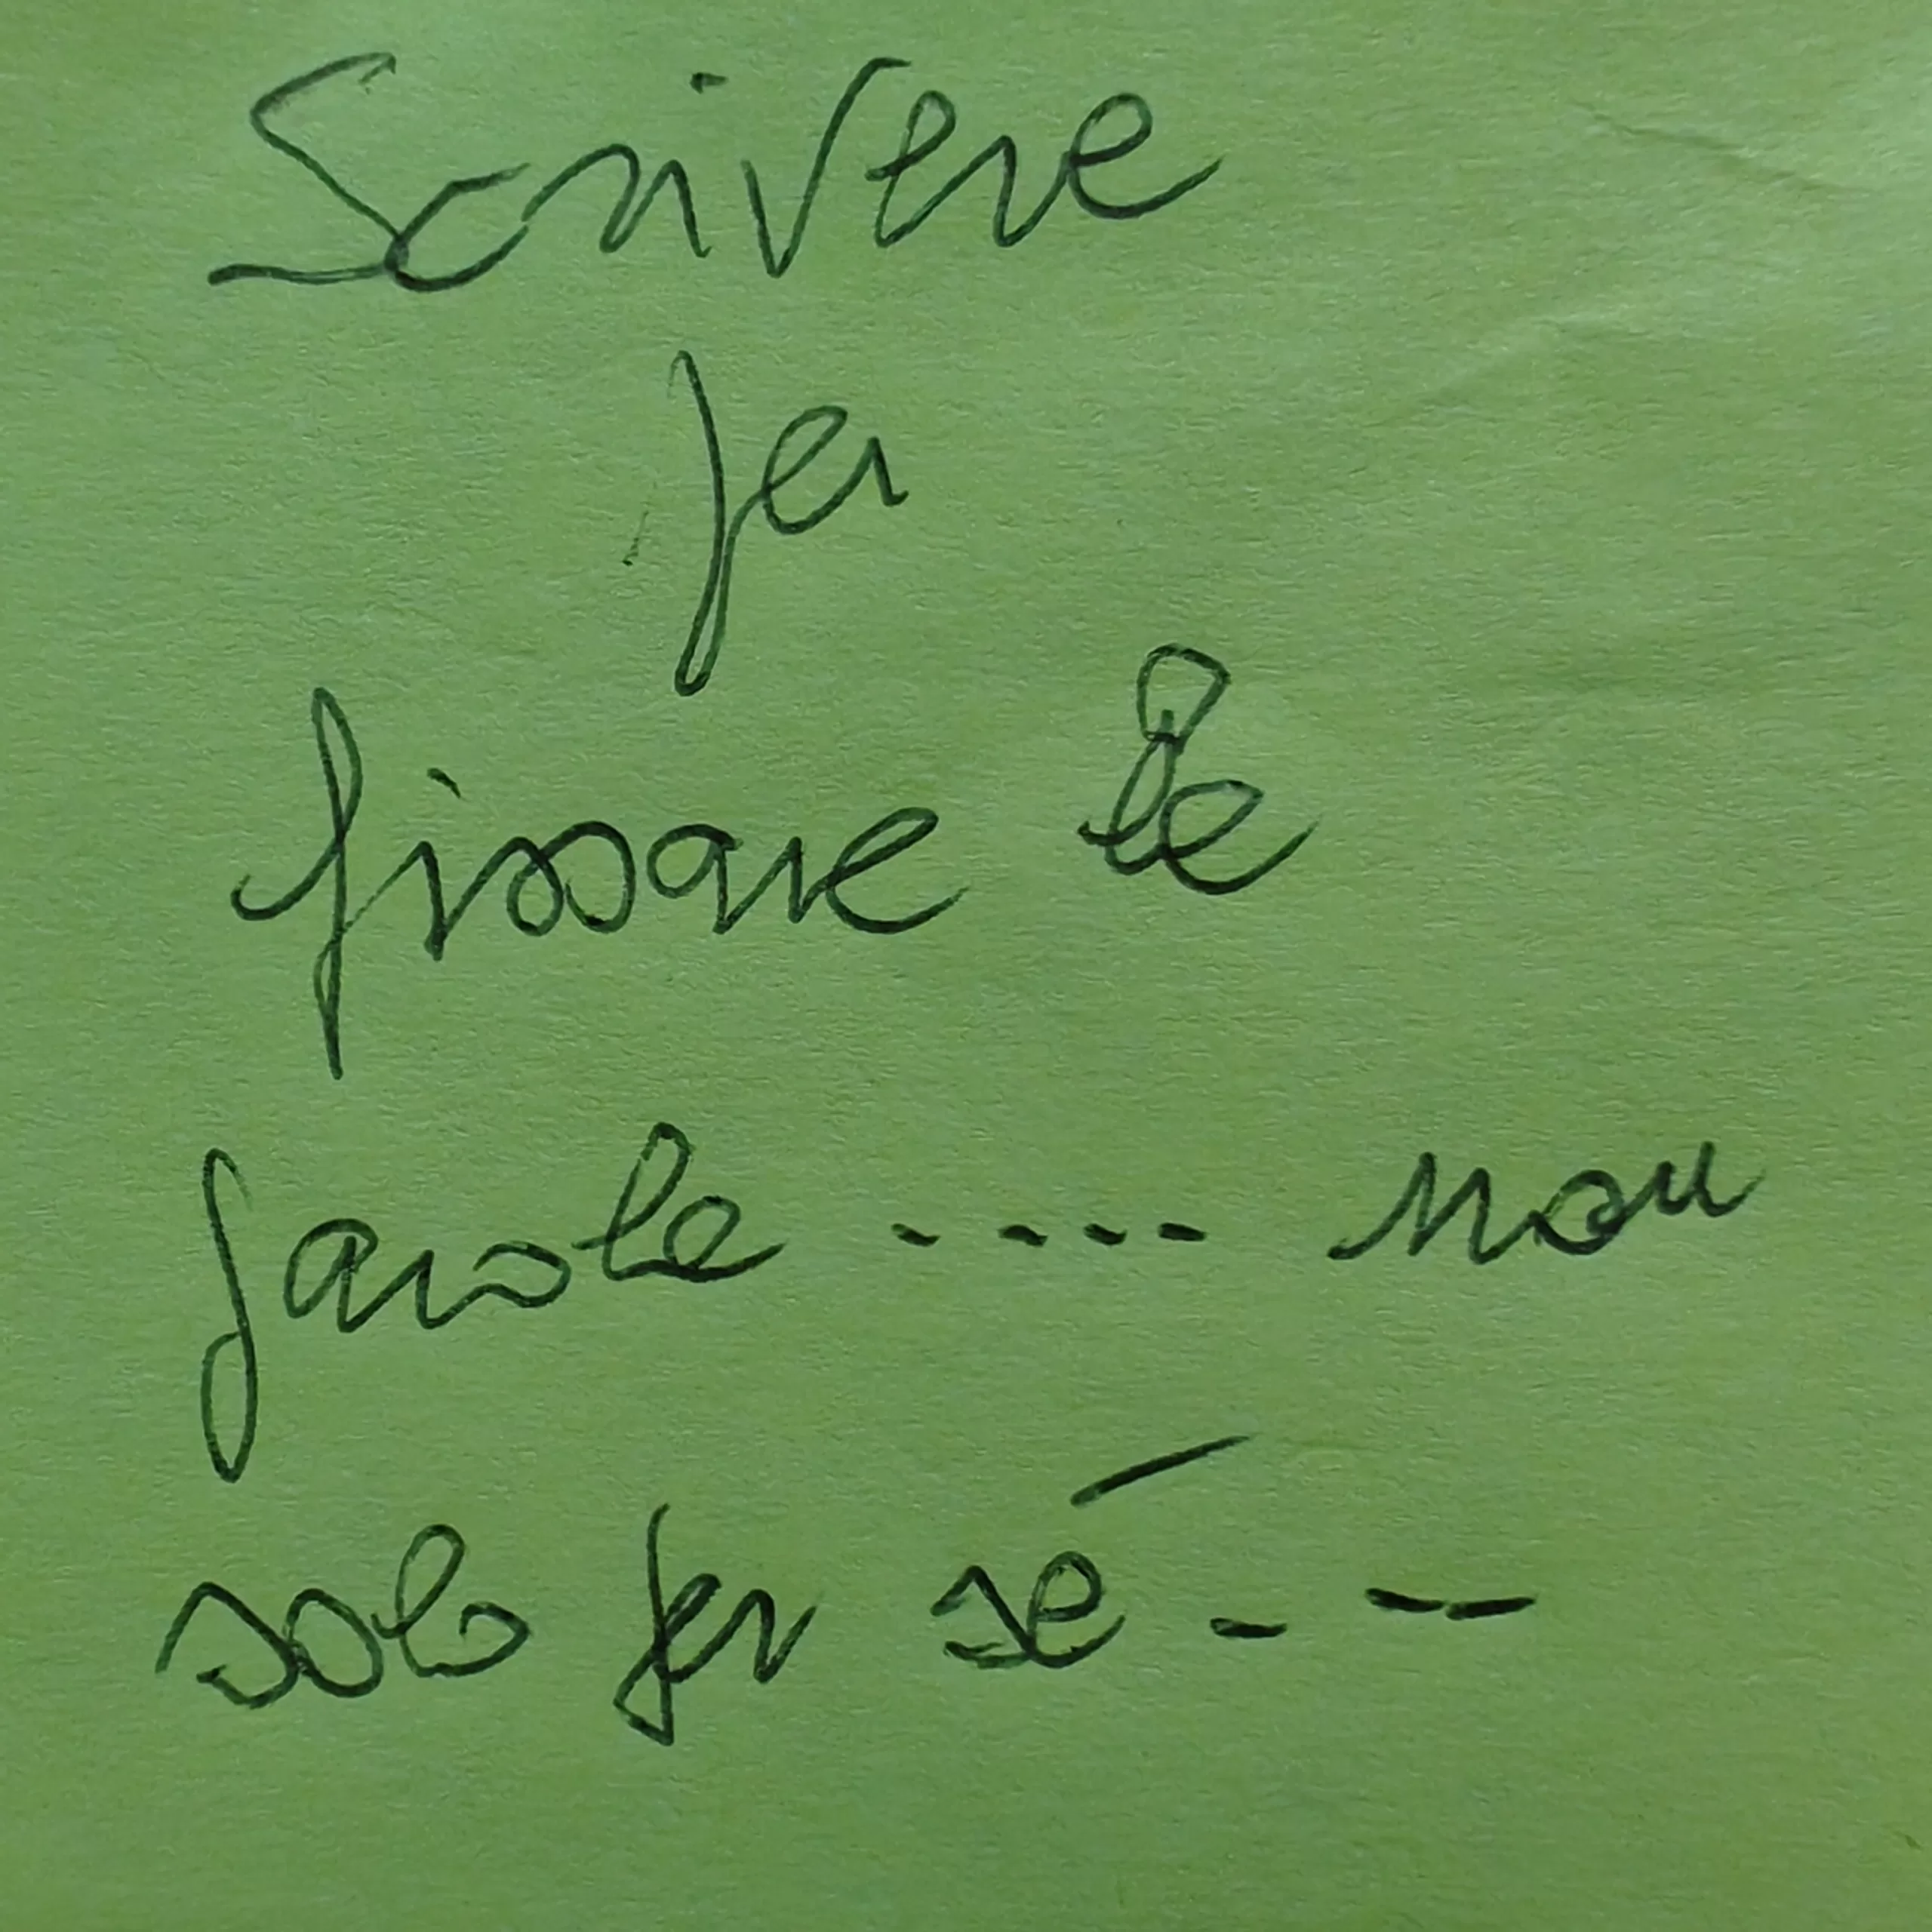 Scrivere
per
fissare le
parole .... non
solo per sé - --